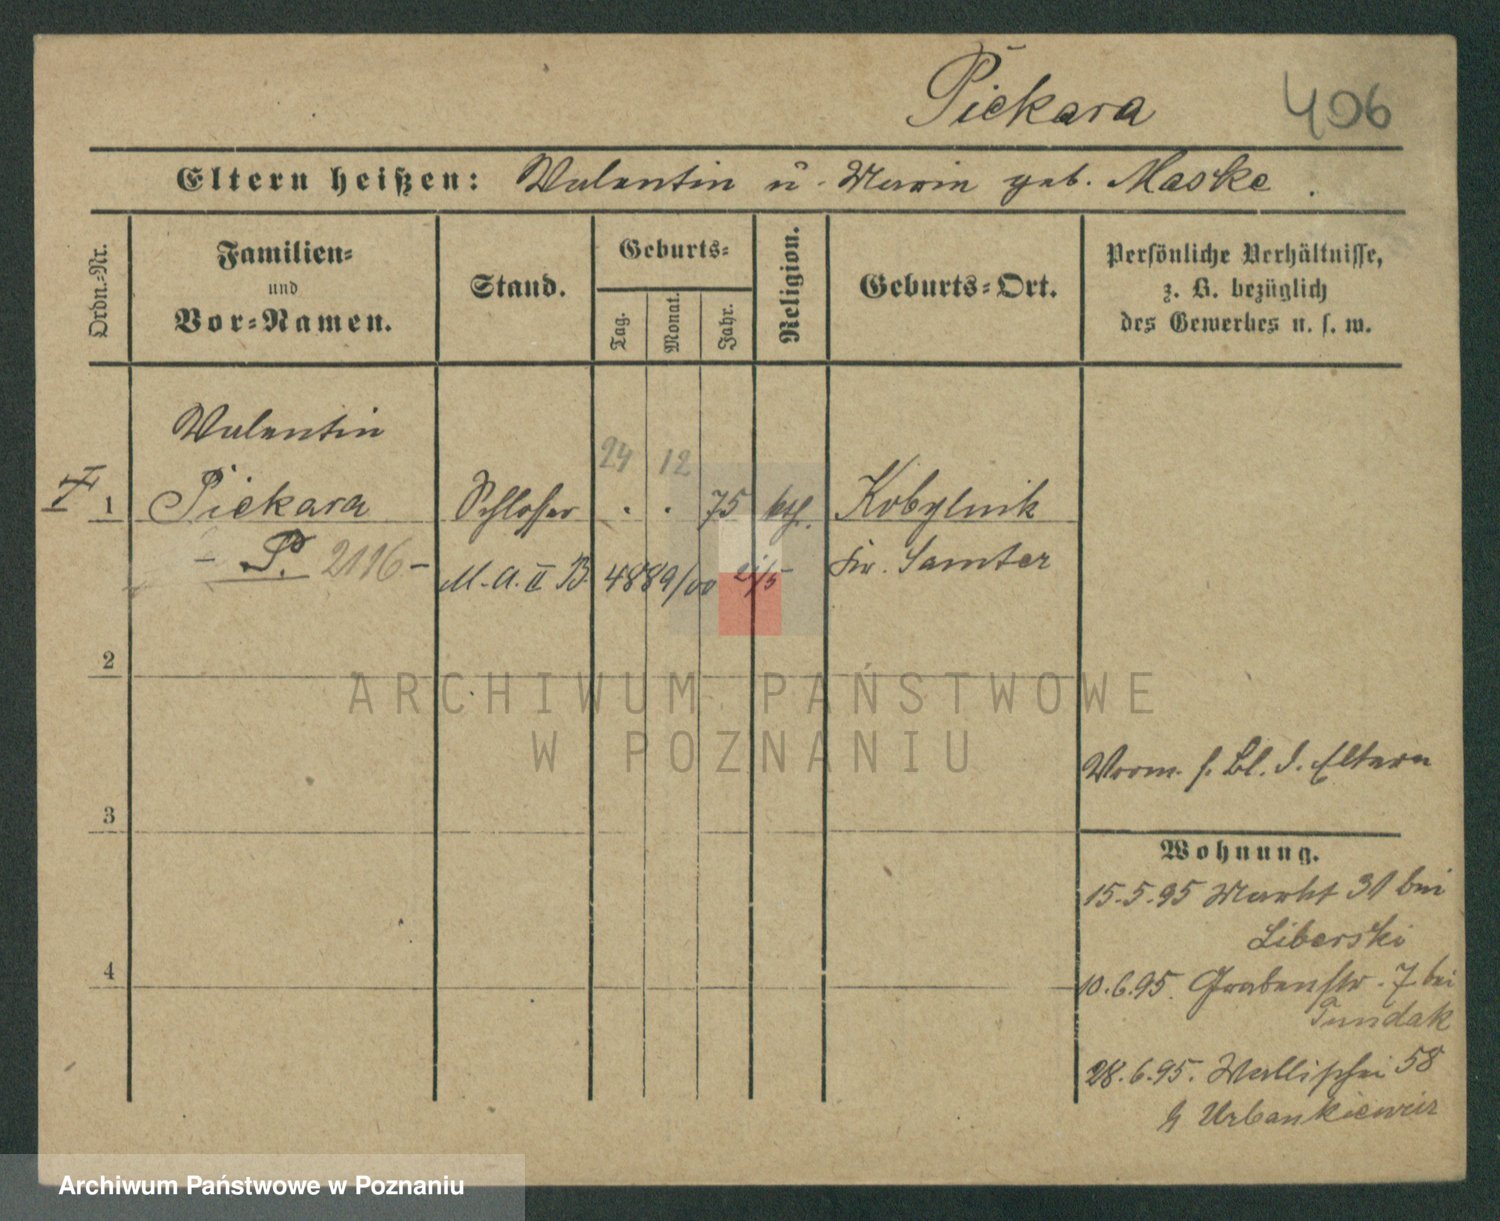 Piekara 406
Eltern heißen: Valentin u. Marie geb. Maske.
Ordn.-Nr.
Familien-
und
Vor-Namen.
Stand.
Geburts-
Tag.
Monat.
Jahr.
Religion.
Geburts-Ort.
Persönliche Verhältnisse,
z. B. bezüglich
des Gewerbes u. s. w.
Valentin
24 12
1 Piekara Schlosser . . 75 kth. Kobylnik
- P. 2116 - M. A. II B 4889/00 Kr. Samter
2
ARCHIWUM PAŃSTWOWE
W POZNANIU
Vorm. s. Bl. d. Eltern
3
Wohnung.
15.5.95 Markt 31 bei
Liberski
4
10.6.95. Grabenstr. 7 bei
Tundak
28.6.95. Wallischei 58
Urbankiewicz
Archiwum Państwowe w Poznaniu